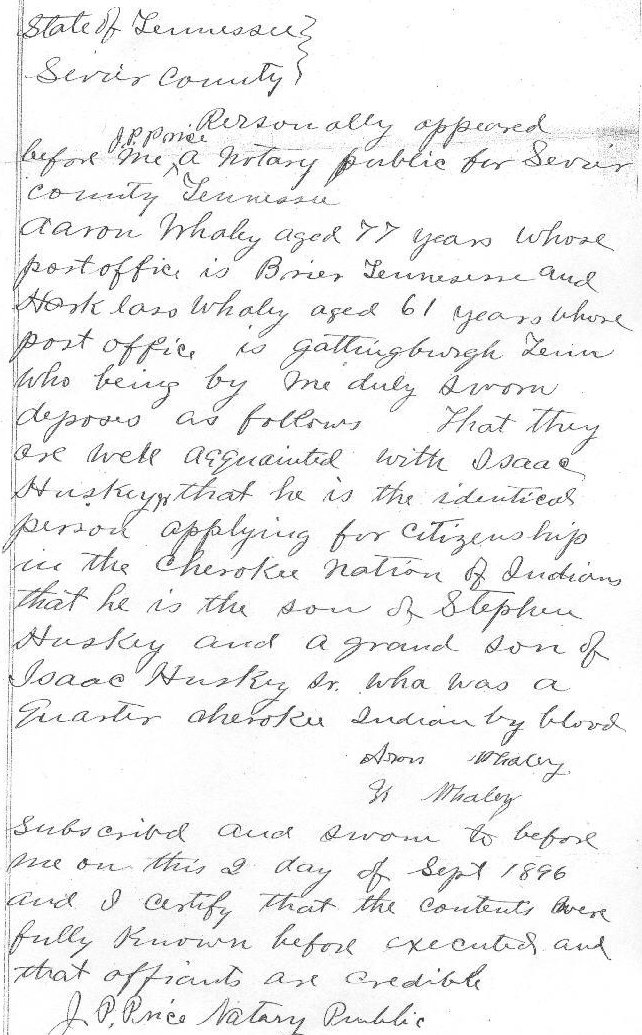 State of Tennessee }
Sevier County }
Personally appeared
J.P. Price
before me ^ a Notary public for Sevier
county Tennessee
Aaron Whaly aged 77 years whose
post office is Brier Tennessee and
whaly aged 61 years whose
post office is gattingburgh Tenn
who being by me duly sworn
deposes as follows That they
are well acquainted with Isaac
Huskey that he is the identical
person applying for citizenship
in the Cherokee Nation of Indians
that he is the son of Stephen
Huskey and a grand son of
Isaac Huskey Sr. who was a
Quarter cherokee Indian by blood
Aron Whaley
Whaley
Subscribd and sworn to before
me on this 2 day of Sept 1896
and I certify that the contents were
fully known before executed and
that affiants are credible
J. P. Price Notary Public